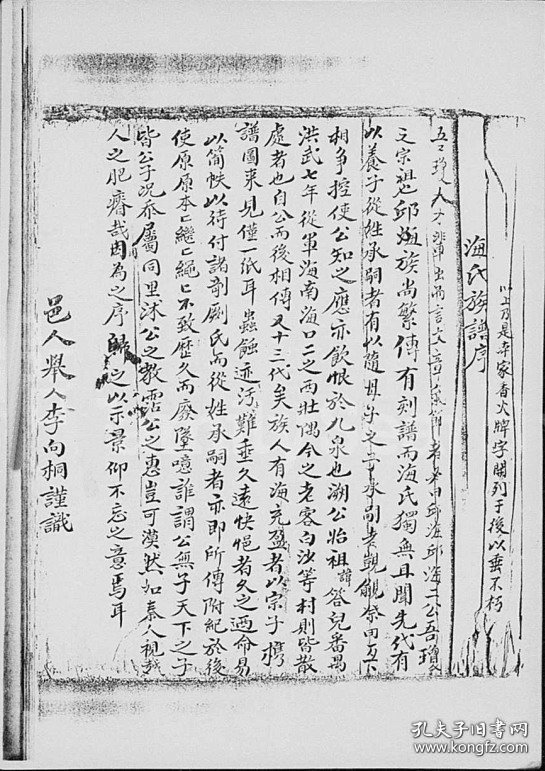 以上乃是本家香火牌字開列于後以垂不朽
海氏族譜序
吾瓊人才輩出而言文章氣節者必由邱海邱海二公吾瓊
之宗祖也邱族尚繁傳有刻譜而海氏獨無且聞先代有
以養子從姓承嗣者有以隨母子之子承嗣者覬覦祭田互下
相爭控使公知之應亦飲恨於九泉也溯公始祖諱答兒番禺
洪武七年從軍海南海口二之西壯隅今之老客白沙等村則皆散
處者也自公而後相傳又十三代矣族人有海充盈者以宗子携
譜圖來見僅一纸耳蟲蝕迹污難垂久遠怏悒者久之迺命易
以簡帙以待付諸剞劂氏而從姓承嗣者亦即所傳附紀於後
使原原本〻繼〻繩〻不致歷久而廢墜噫誰謂公無子天下之子
皆公子況忝屬同里沐公之教霑公之惠豈可漠然如秦人視越
人之肥瘠哉因為之序歸之以示景仰不忘之意焉耳
邑人舉人李向桐謹識
孔夫子旧书网
www.kongfz.com